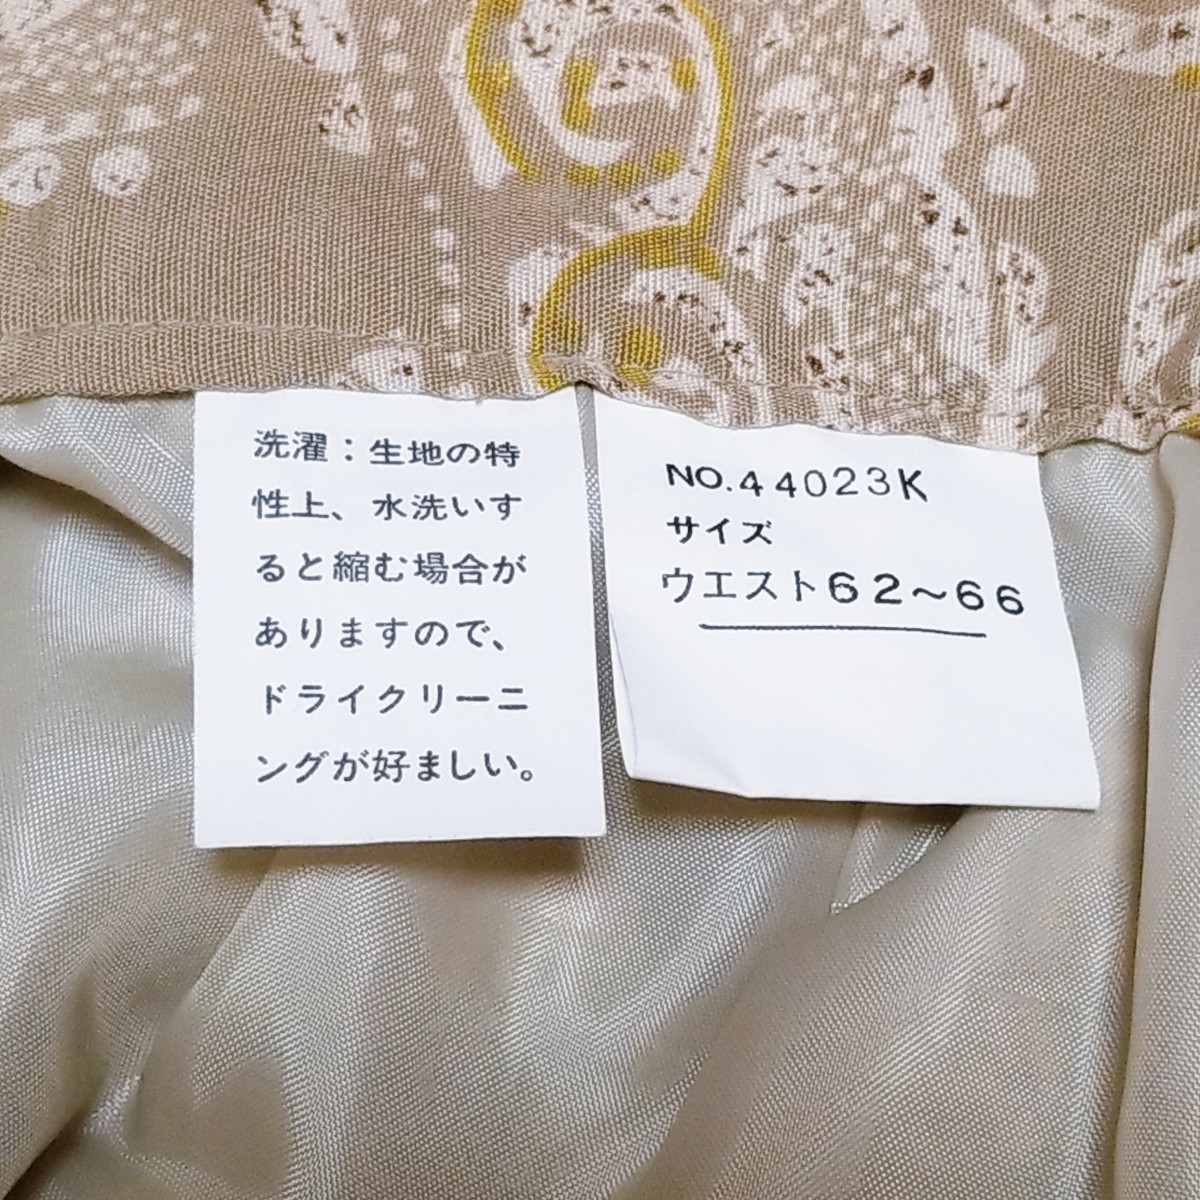 洗濯：生地の特
性上、水洗いす
ると縮む場合が
ありますので、
ドライクリーニ
ングが好ましい。
NO.44023K
サイズ
ウエスト62〜66